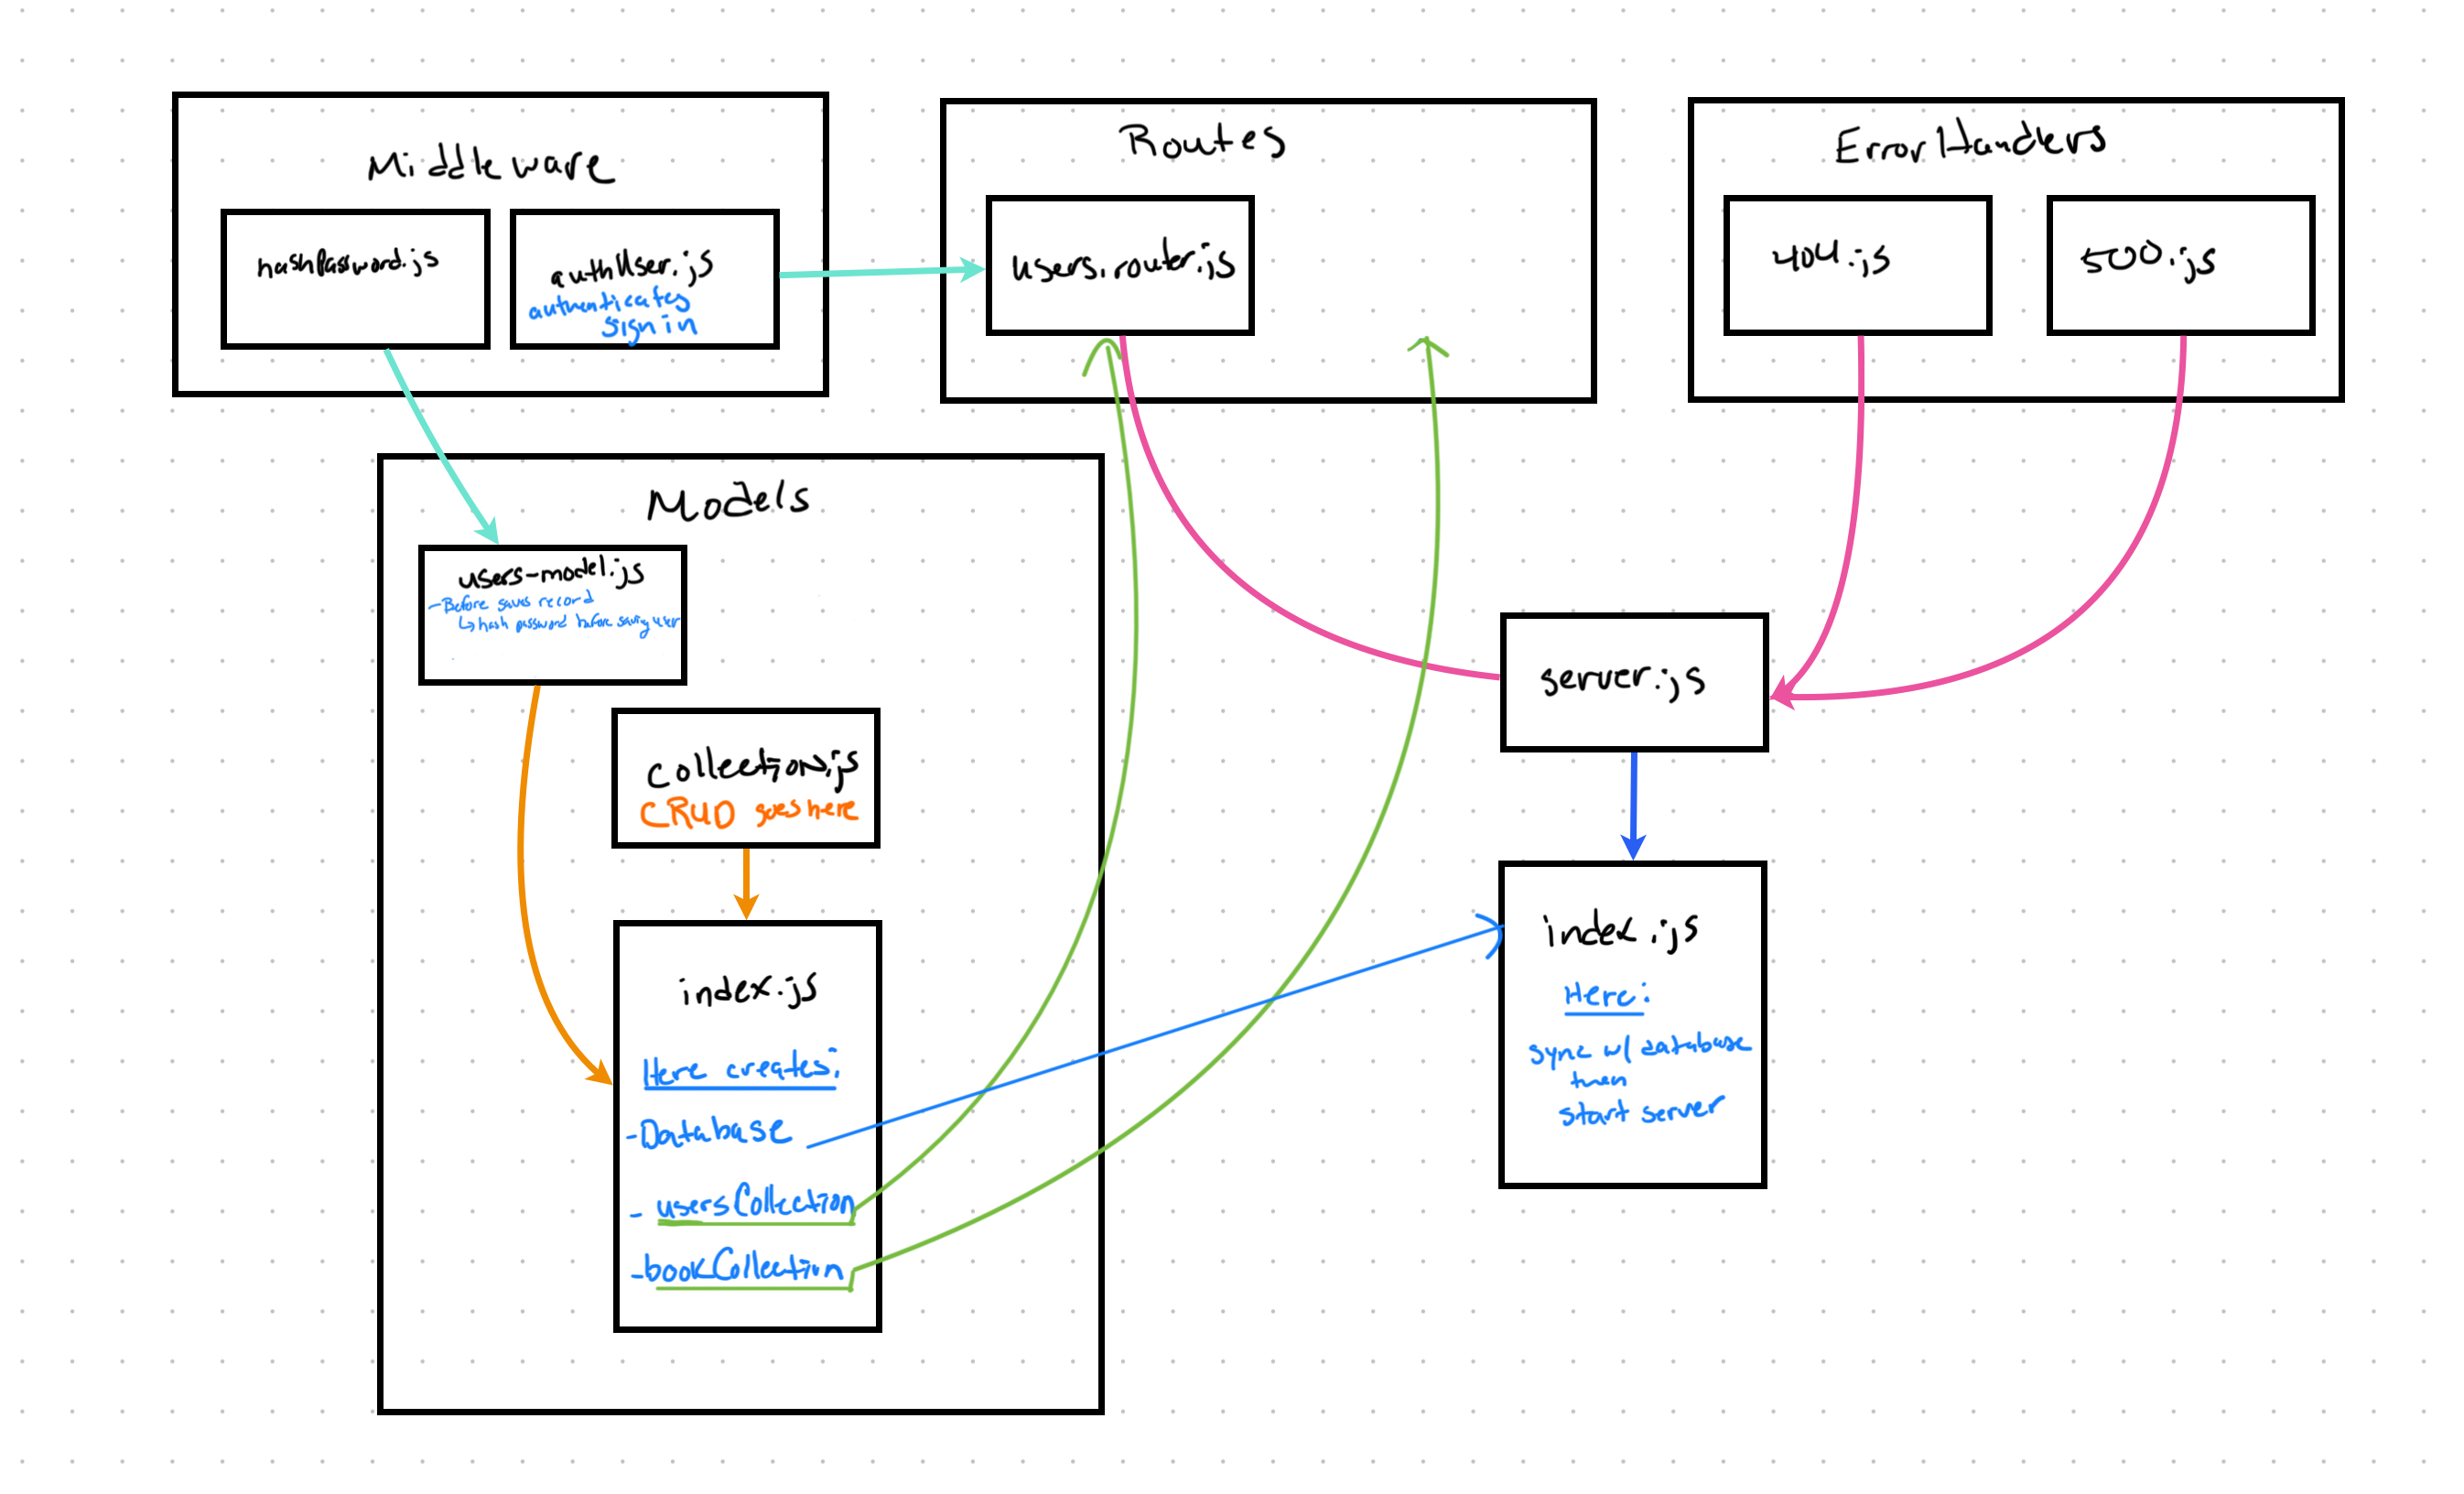 Middleware
hashPassword.js
authUser.js
authenticates
sign in
Routes
users.router.js
ErrorHandlers
404.js
500.js
Models
users-model.js
-Before saves record
↳ hash password before saving user
collection.js
CRUD goes here
index.js
Here creates:
-Database
- usersCollection
-bookCollection
server.js
index.js
Here:
sync w/ database
then
start server